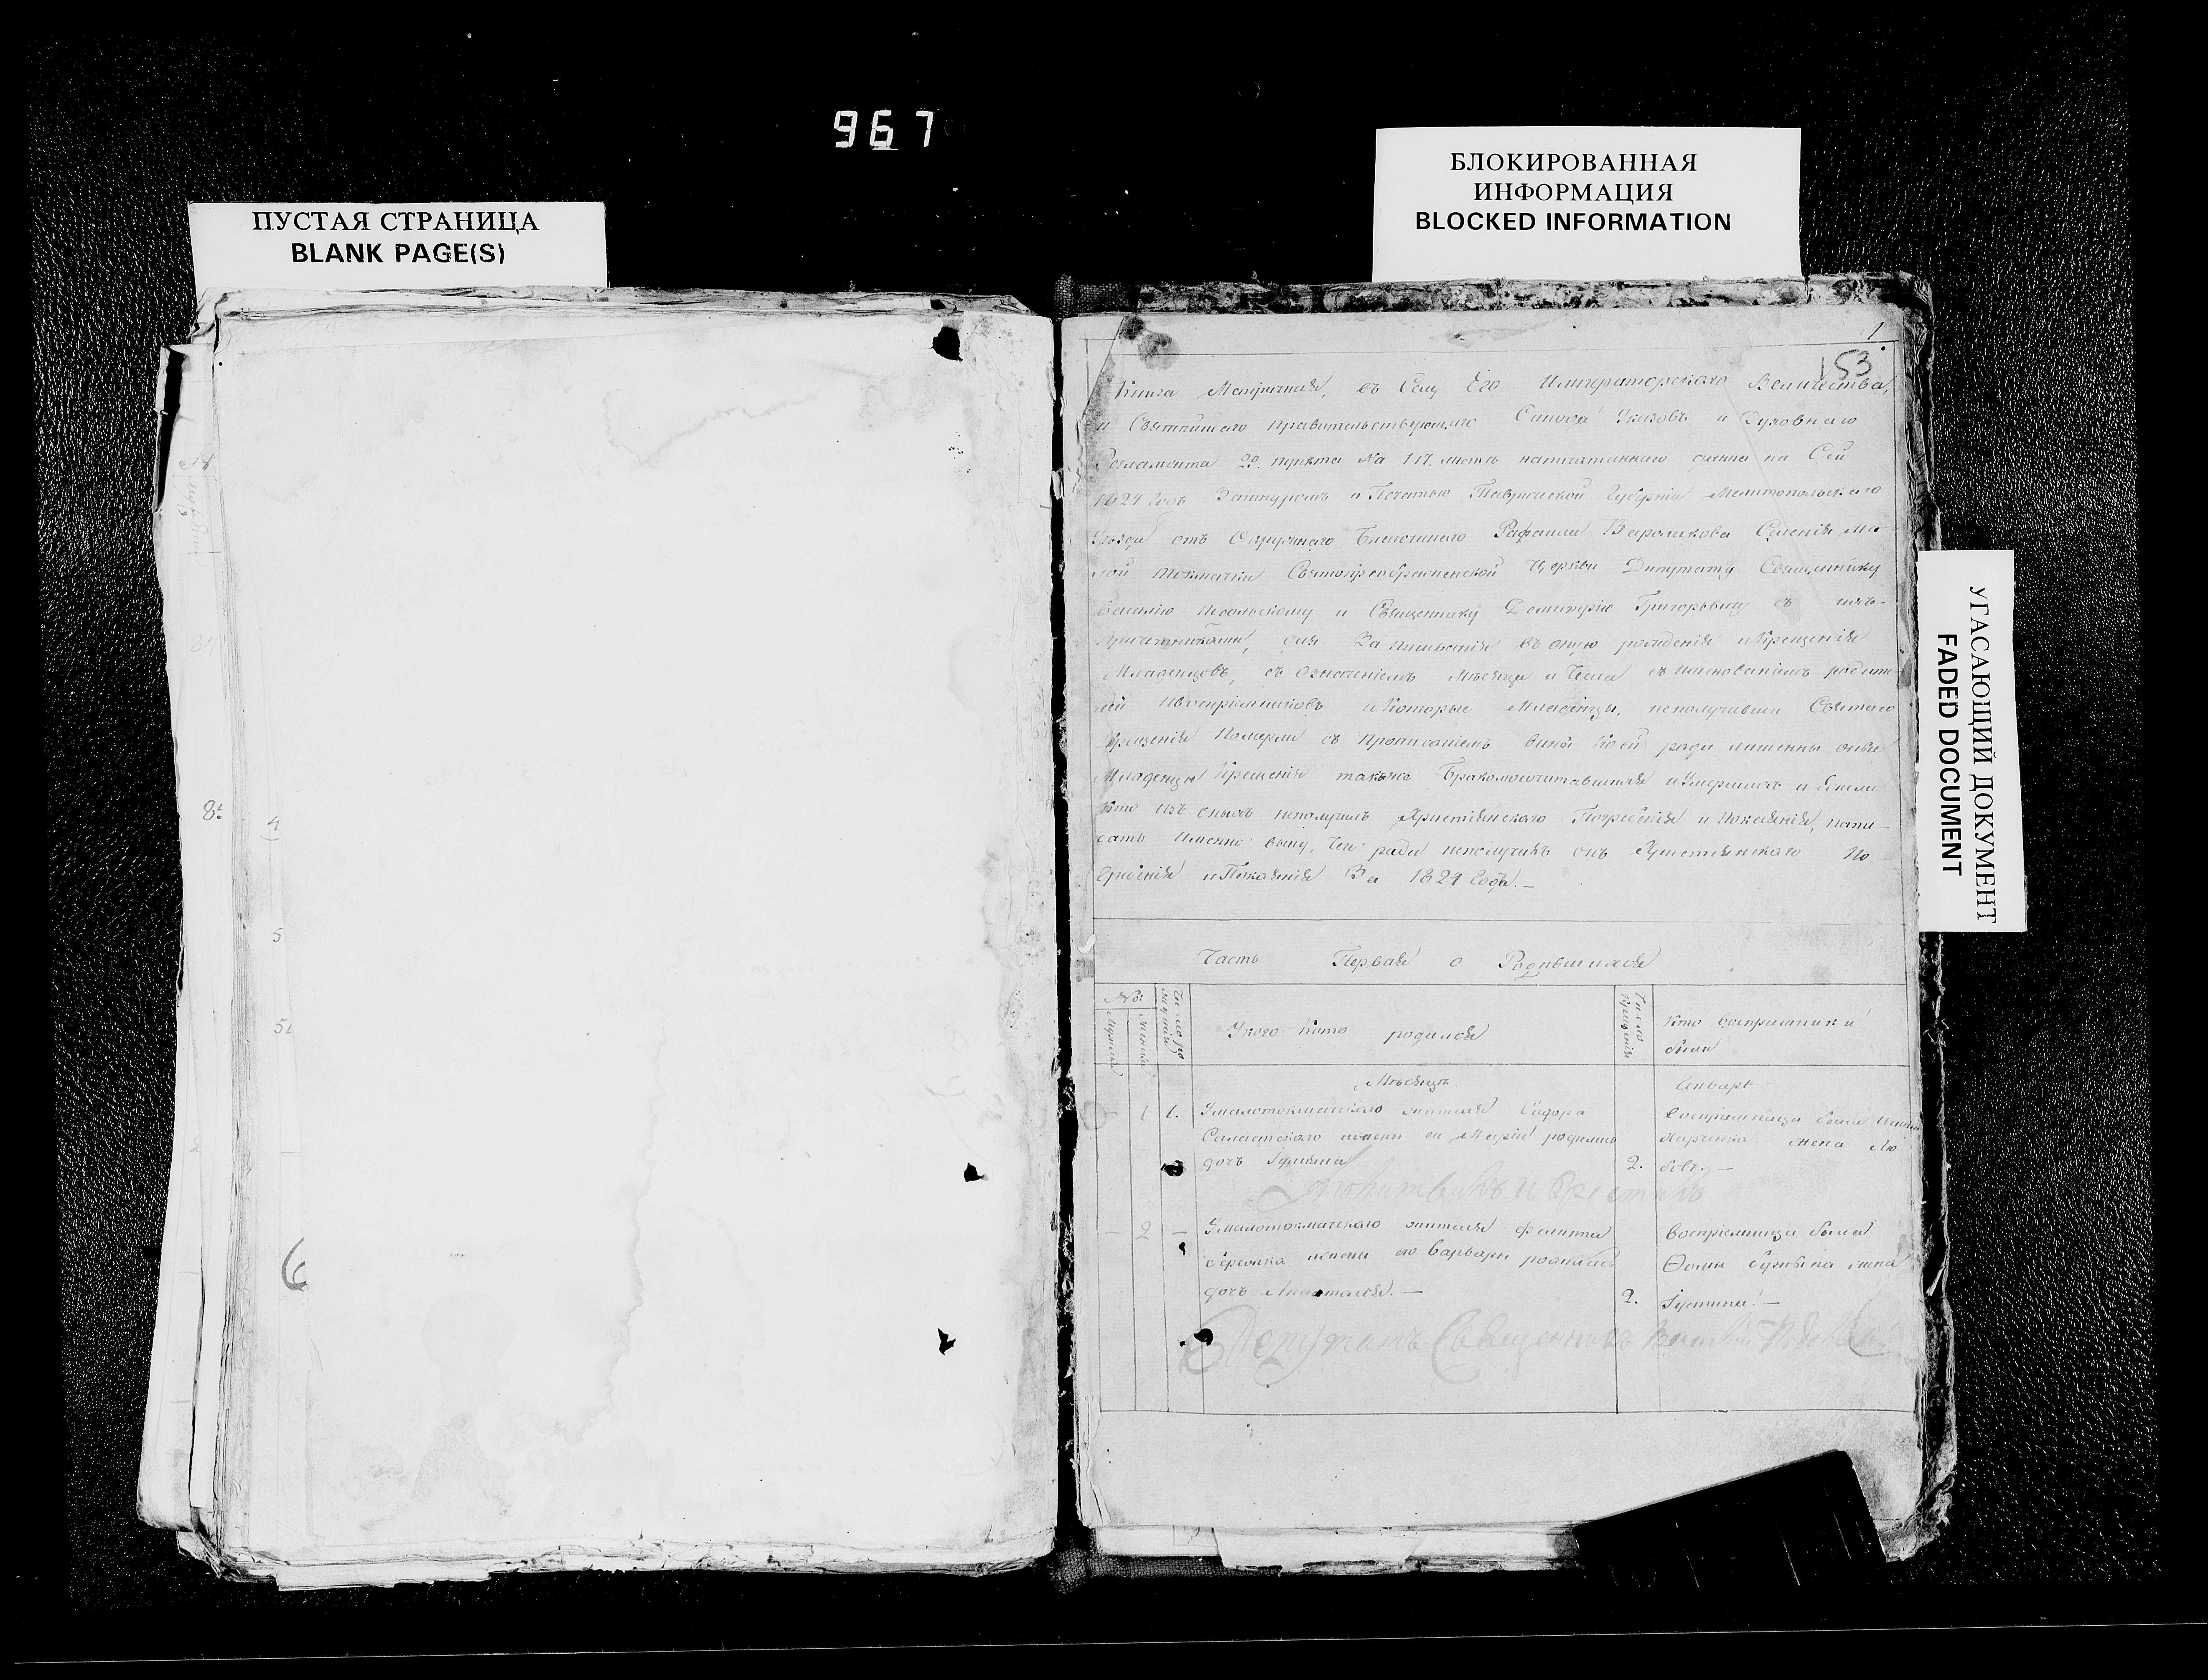 967
ПУСТАЯ СТРАНИЦА
BLANK PAGE(S)
БЛОКИРОВАННАЯ
ИНФОРМАЦИЯ
BLOCKED INFORMATION
УГАСАЮЩИЙ ДОКУМЕНТ
FADED DOCUMENT
4
5
6
1
153
Книга Метричная, въ Силу Его Императорскаго Величества,
и Святейшаго Правительствующаго Синода Указовъ и Духовнаго
Регламента 29. пункта На 117. листѣ напечатаннаго данна на Сей
1824 Годъ За шнуромъ и Печатью Таврической Губерніи Мелитопольскаго
Уезда отъ Окружнаго Благочиннаго Рафаила Селенія Ма-
лой Токмачки Святопреображенской Церкви Депутату Священнику
Василію и Священнику Димитрію Григорьеву съ ихъ
причетниками, для Записыванія въ оную рожденія и Крещенія
Младенцовъ, съ Означеніемъ Месяца и Числа съ именованіемъ родите-
лей Ивоспріемниковъ и Которые Младенцы, неполучивши Святаго
Крещенія Померли съ Прописаніемъ вины Коей ради лишенны оные
Младенцы Крещенія такъже Бракомъсочитавшихся и Умершихъ и Ежели
Кто изъ оныхъ неполучилъ Христіянскаго Погребенія и Покаянія, напи-
сать Именно вину, Чего ради неполучилъ онъ Христіянскаго По-
гребенія и Покаянія За 1824 Годъ.—
Часть Первая о Родившихся
№
Мужеска
Женска
Число рожденія
У кого Кто родился
Число Крещенія
Кто Воспріемники
были
Месяцъ
Генварь
1 1. Умалотокмачскаго жителя Сидора
жены его Маріи родилась
дочь Іуліяна
2.
Воспріемница была
Харченка жена Лю
бовь.—
Молитвилъ и Крестилъ
— 2 — Умалотокмачскаго жителя Филипа
жены его Варвары родилась
дочь Анастасія.—
2.
Воспріемница была
Ѳомы жена
Іустина.—
Депутатъ Священникъ Василій